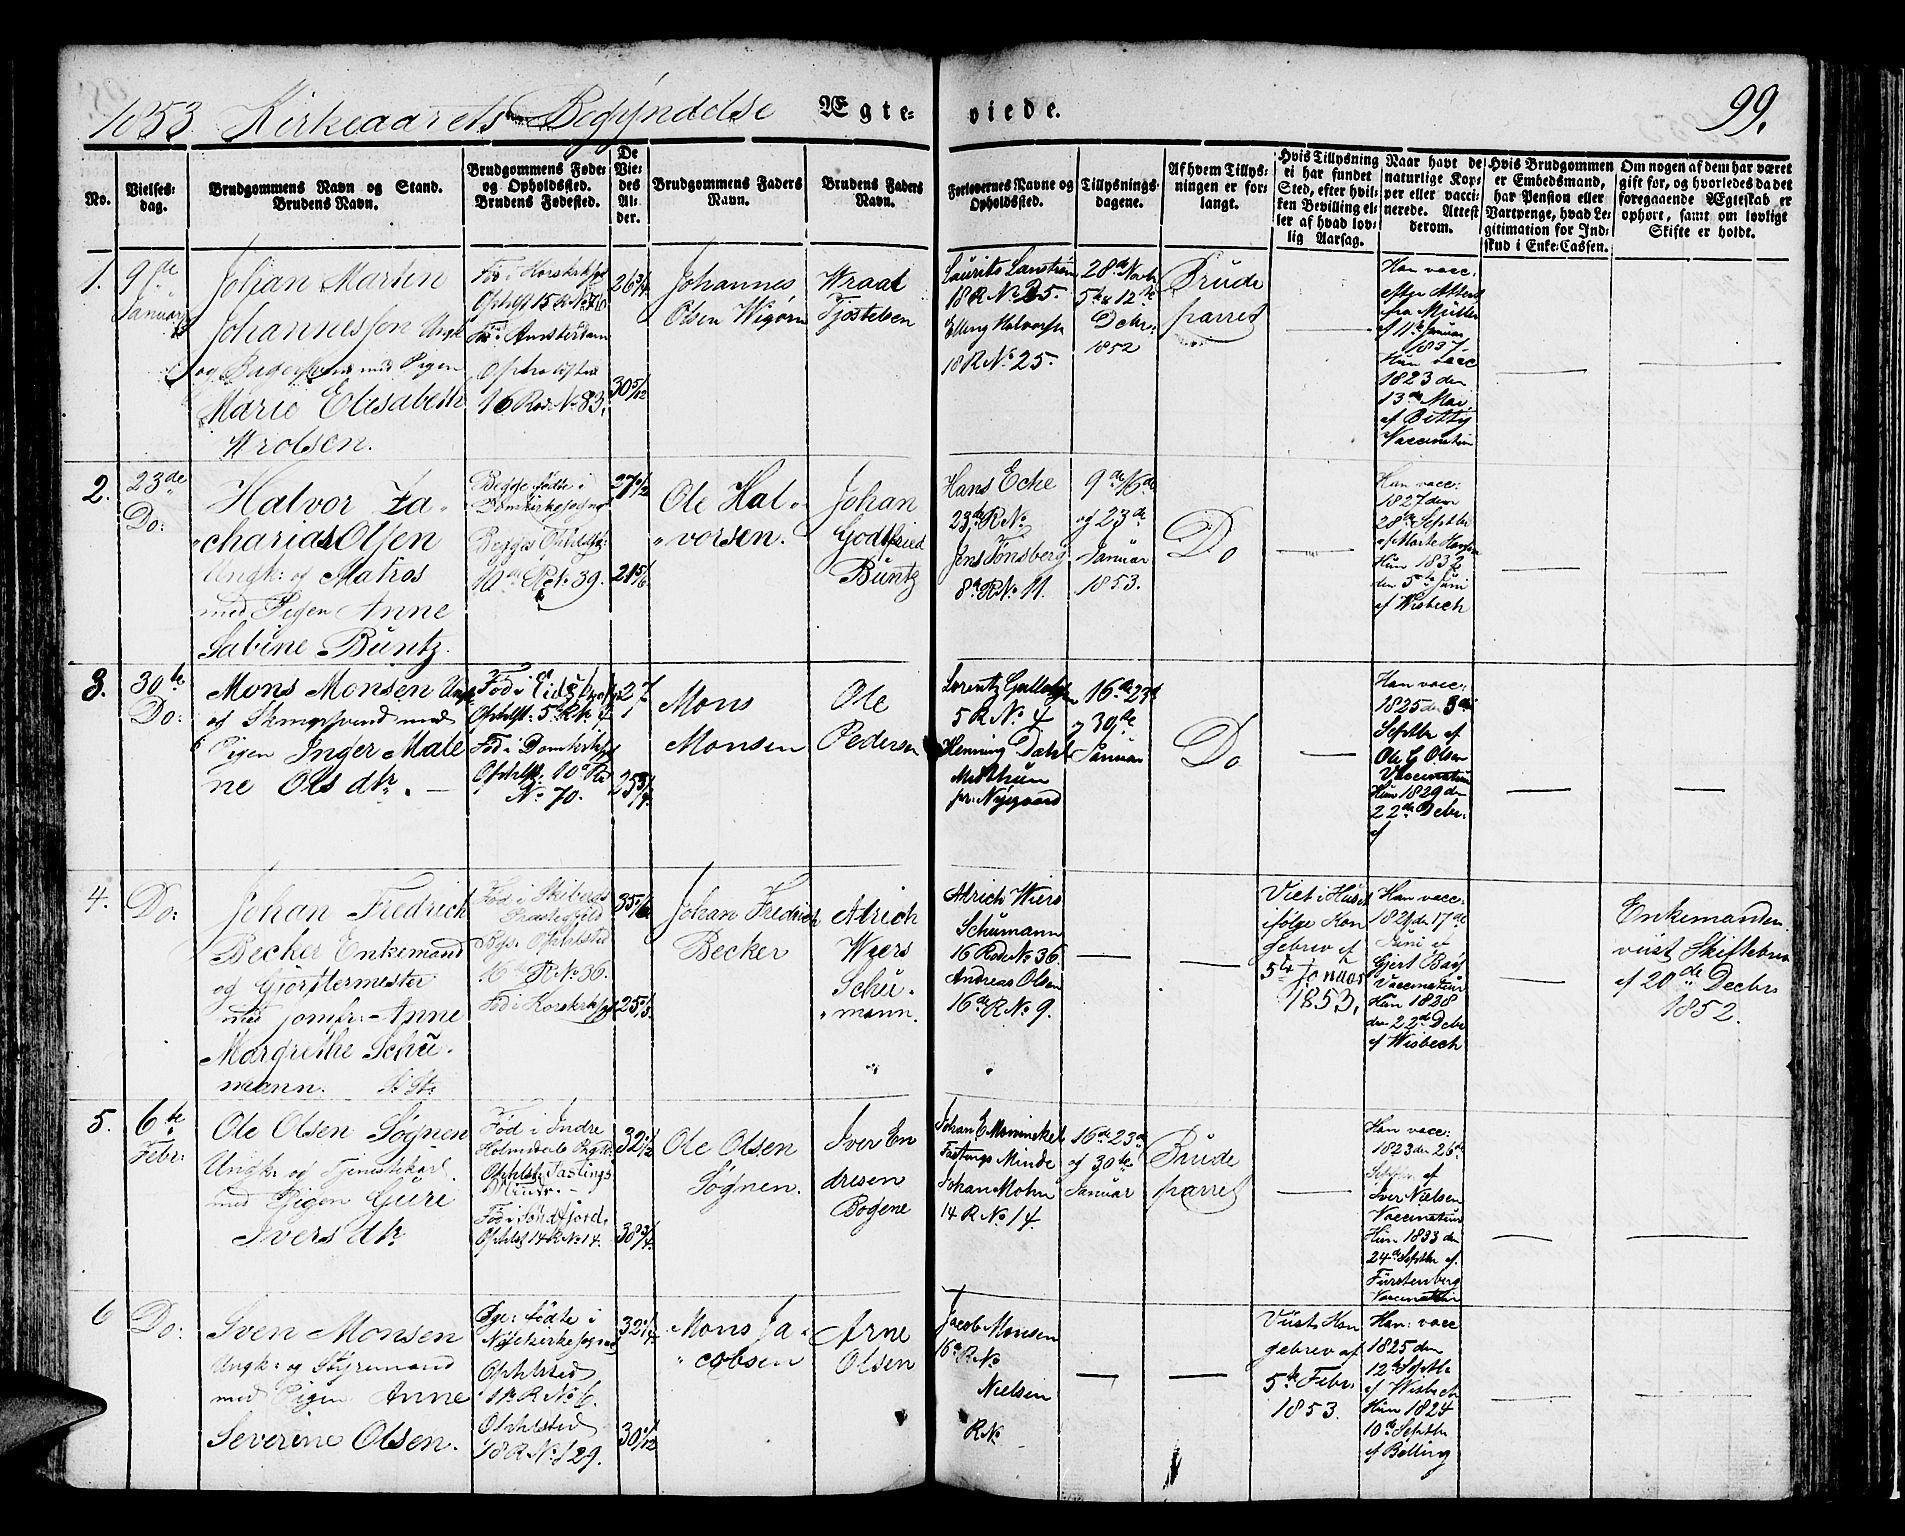 1853 Kirkeaarets Begyndelse Ægteviede. 99.
No.
Vielsesdag.
Brudgommens Navn og Stand.
Brudens Navn.
Brudgommens Føde- og Opholdssted.
Brudens Fødested.
De Viedes Alder.
Brudgommens Faders Navn.
Brudens Faders Navn.
Forlovernes Navne og Opholdssted.
Tillysningsdagene.
Af hvem Tillysningen er forlangt.
Hvis Tillysning ei har fundet Sted, efter hvilken Bevilling eller af hvad lovlig Aarsag.
Naar havt de naturlige Kopper eller vaccinerede. Attest derom.
Hvis Brudgommen er Embedsmand, har Pension eller Vartpenge, hvad Legitimation for Indskud i Enke-Cassen.
Om nogen af dem har været gift før, og hvorledes da det foregaaende Ægteskab er ophørt, samt om lovligt Skifte er holdt.
1.
9de Januar
Johan Martin
Johannessen Ungk
og med Pigen
Marie Elisabeth
Wrolsen.
Fød i Korskskpl
Ophlst 15 R No
Fød i Amsterdam
16 Rode No 83.
26 3/4
30 5/12
Johannes
Olsen Wigörn
Wraal
Tjostelsen
Laurits Lanström
18 R No 25.
Elling Halvorsen
18 R No 25.
28de Novbr
5te & 12te
Decbr:
1852
Brude
parret
—
Han vacc:
efter Attest
fra Müller
af 11te Januar
1837
Hun vacc
1823 den
13de Mai
af Betty
Vaccinatrice
—
—
2.
23de
Do:
Halvor Za-
charias Olsen
Ungk: og Matros
med Pigen Anne
Sabine Buntz.
Begge fødte i
Domkirkesognet
Begges Ophlsst:
10de R No 39.
27
21 5/6
Ole Hal-
vorsen.
Johan
Godtfried
Büntz
Hans Ecke
23de R No
Jens Tonsberg
8de R No 11.
9de 16de
og 23de
Januar
1853.
Do
—
Han vacc:
1827 den
28de Septbr
af Marte Hansen
Hun 1832
den 5te Juni
af Wisbech
—
—
3.
30te
Do:
Mons Monsen Ungk
og med
Pigen Inger Male
ne Olsdtr. —
Fød i
Ophlst: 5te R No 4
Fød i Domkirkspl
Ophlst: 10de Rd
No 70.
27
25 3/4
Mons
Monsen
Ole
Pedersen
Lorentz
5 R No 4
Henning Dahl
Midthun
pr: Nygaard
16de 23de
& 30te
Januar
Do
—
Han vacc:
1825 den 3die
Septbr af
Ole G Olsen
Vaccinateur
Hun 1829 den
22de Decbr:
af
—
—
4.
Do:
Johan Fredrich
Becker Enkemand
og Giørtlermester
med Jomfr: Anne
Margrethe Schu-
mann.
Fød i Skibereds
Præstegjeld
Ophlsted
16de R No 36.
Fød i Korskskspl
35
25
Johan Fredrich
Becker
Alrich
Wiers
Schu-
mann.
Alrich Wiers
Schumann
16 Rode No 36
Andreas Olsen
16de R No 9.
—
—
Viet i Huset
ifølge Kon
gebrev af
5te Januar
1853.
Han vacc:
den 17de
Juni af
Gjert Bøy
Vaccinateur
Hun 1828
den 22de Decbr
af Wisbech
—
Enkemanden
viist Skiftebrev
af 20de Decbr
1852.
5.
6te
Febr:
Ole Olsen Søgnen
Ungk: og Tjenestekarl
med Pigen Guri
Iversdtr
Fød i Indre
Holmedals Prgjld:
Ophlst: Fastings
Minde. —
Fød i Søndfjord.
Ophlst 14 R No 14.
32
38 3/4
Ole Olsen
Søgnen.
Iver En
dresen
Bogene
Johan E Mowinckel
Fastings Minde
Johan Mohn
14 R No 14.
16de 23de
og 30te
Januar
Brude
parret
—
Han vacc:
1823 den 26de
Septbr: af
Iver Nielsen
Vaccinateur
Hun 1833 den
24de Septbr af
Fürstenberg
Vaccinatrice
—
—
6
Do:
Sven Monsen
Ungk: og Styrmand
med Pigen Anne
Severine Olsen.
Bge: fødte i
Nykirkesognet
Ophlsted
1te R No 6.
Ophlsted
18 R No 129.
32
30
Mons Ja-
cobsen
Arne
Olsen
Jacob Monsen
16de R No
Nielsen
R No
—
—
Viist Kon
gebrev af
5te Febr:
1853.
Han: vacc
1825 den
12te Septbr
af Wisbech
Hun 1824
10de Septbr
af Bølling
—
—